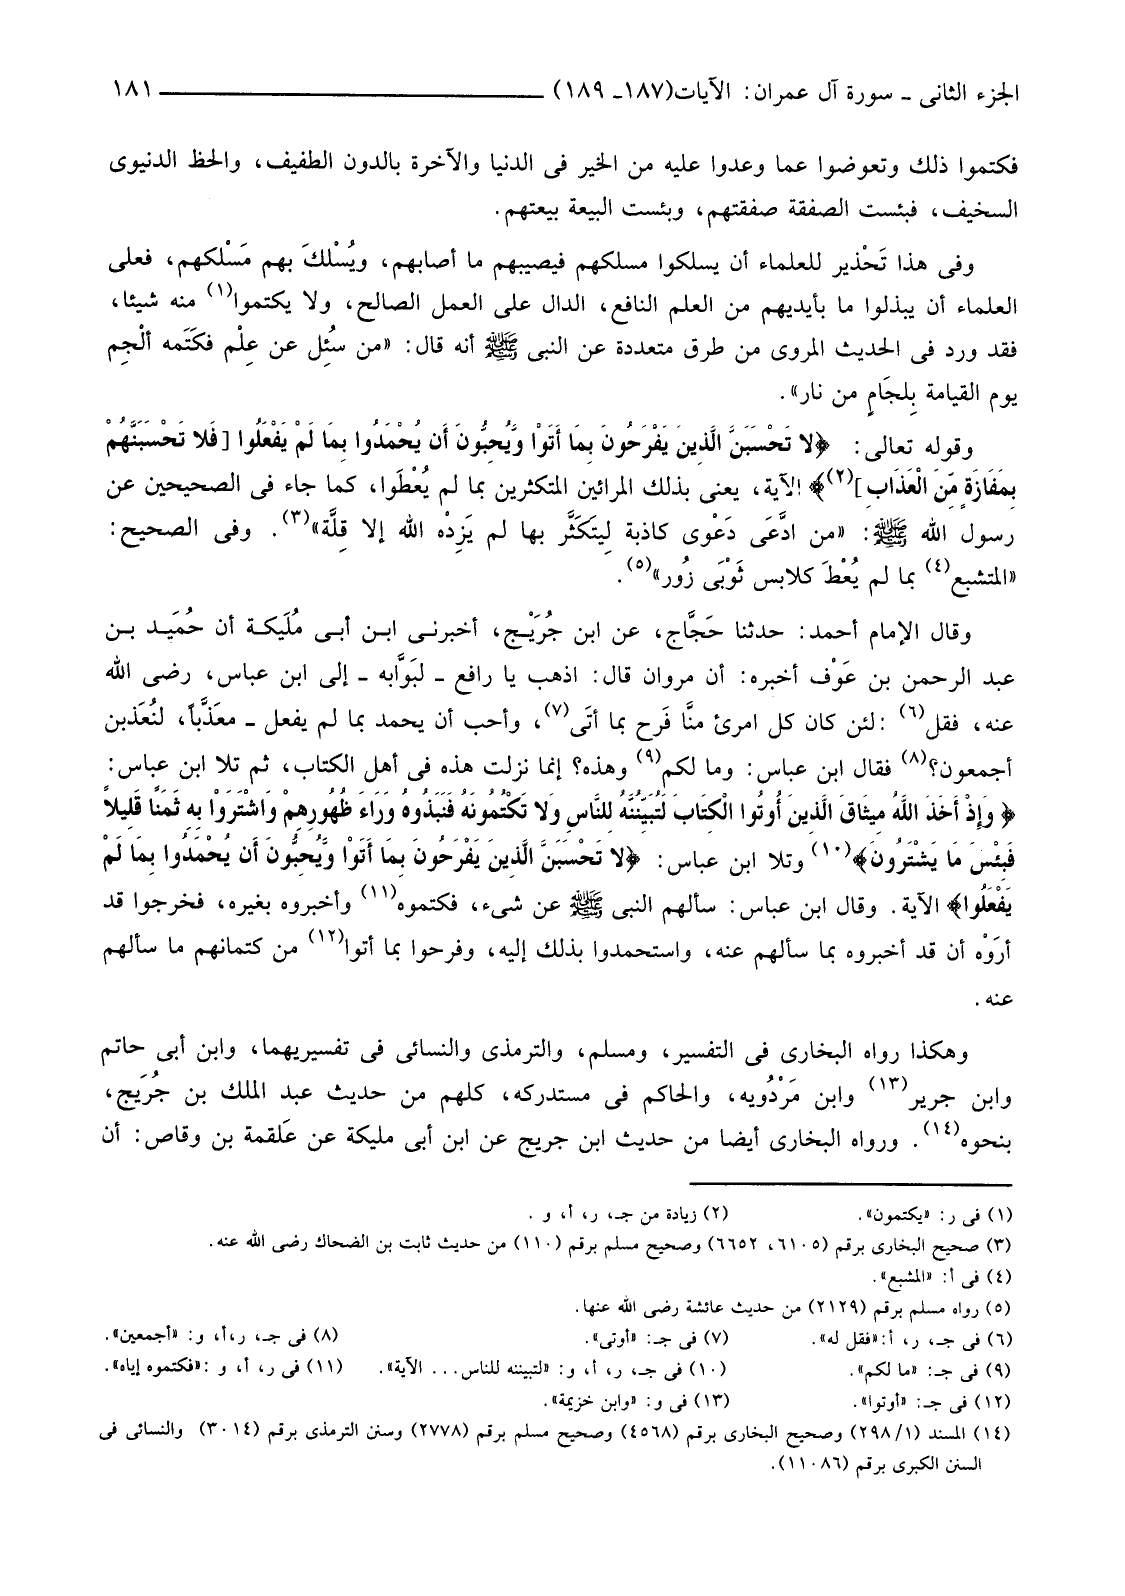 الجزء الثانى ـ سورة آل عمران: الآيات(١٨٧ـ ١٨٩) ـــــــــــ ١٨١
فكتموا ذلك وتعوضوا عما وعدوا عليه من الخير فى الدنيا والآخرة بالدون الطفيف، والحظ الدنيوى
السخيف، فبئست الصفقة صفقتهم، وبئست البيعة بيعتهم.
وفى هذا تَحْذير للعلماء أن يسلكوا مسلكهم فيصيبهم ما أصابهم، ويُسْلكَ بهم مَسْلكهم، فعلى
العلماء أن يبذلوا ما بأيديهم من العلم النافع، الدال على العمل الصالح، ولا يكتموا(١) منه شيئا،
فقد ورد فى الحديث المروى من طرق متعددة عن النبى ﷺ أنه قال: «من سُئِل عن عِلْم فكَتَمه ألْجِم
يوم القيامة بِلجَامٍ من نار».
وقوله تعالى: ﴿لا تَحْسَبَنَّ الَّذِينَ يَفْرَحُونَ بِمَا أَتَوْا وَّيُحِبُّونَ أَن يُحْمَدُوا بِمَا لَمْ يَفْعَلُوا [فَلا تَحْسَبَنَّهُمْ
بِمَفَازَةٍ مِّنَ الْعَذَابِ](٢)﴾ الآية، يعنى بذلك المرائين المتكثرين بما لم يُعْطَوا، كما جاء فى الصحيحين عن
رسول الله ﷺ: «من ادَّعَى دَعْوى كاذبة لِيتَكَثَّر بها لم يَزِدْه الله إلا قِلَّة»(٣). وفى الصحيح:
«المتشبع(٤) بما لم يُعْطَ كلابس ثَوْبَى زُور»(٥).
وقال الإمام أحمد: حدثنا حَجَّاج، عن ابن جُرَيْج، أخبرنى ابن أبى مُلَيكة أن حُمَيد بن
عبد الرحمن بن عَوْف أخبره: أن مروان قال: اذهب يا رافع ـ لبَوَّابه ـ إلى ابن عباس، رضى الله
عنه، فقل(٦) :لئن كان كل امرئ منَّا فَرح بما أتَى(٧)، وأحب أن يحمد بما لم يفعل ـ معَذَّباً، لنُعَذبن
أجمعون؟(٨) فقال ابن عباس: وما لكم(٩) وهذه؟ إنما نزلت هذه فى أهل الكتاب، ثم تلا ابن عباس:
﴿ وَإِذْ أَخَذَ اللَّهُ مِيثَاقَ الَّذِينَ أُوتُوا الْكِتَابَ لَتُبَيِّنُنَّهُ لِلنَّاسِ وَلا تَكْتُمُونَهُ فَنَبَذُوهُ وَرَاءَ ظُهُورِهِمْ وَاشْتَرَوْا بِهِ ثَمَنًا قَلِيلاً
فَبِئْسَ مَا يَشْتَرُونَ﴾(١٠) وتلا ابن عباس: ﴿لا تَحْسَبَنَّ الَّذِينَ يَفْرَحُونَ بِمَا أَتَوْا وَّيُحِبُّونَ أَن يُحْمَدُوا بِمَا لَمْ
يَفْعَلُوا﴾ الآية. وقال ابن عباس: سألهم النبى ﷺ عن شىء، فكتموه(١١) وأخبروه بغيره، فخرجوا قد
أرَوْه أن قد أخبروه بما سألهم عنه، واستحمدوا بذلك إليه، وفرحوا بما أتوا(١٢) من كتمانهم ما سألهم
عنه.
وهكذا رواه البخارى فى التفسير، ومسلم، والترمذى والنسائى فى تفسيريهما، وابن أبى حاتم
وابن جرير(١٣) وابن مَرْدُويه، والحاكم فى مستدركه، كلهم من حديث عبد الملك بن جُرَيج،
بنحوه(١٤). ورواه البخارى أيضا من حديث ابن جريج عن ابن أبى مليكة عن عَلقمة بن وقاص: أن
(١) فى ر: «يكتمون». (٢) زيادة من جـ، ر، أ، و .
(٣) صحيح البخارى برقم (٦١٠٥، ٦٦٥٢) وصحيح مسلم برقم (١١٠) من حديث ثابت بن الضحاك رضى الله عنه.
(٤) فى أ: «المشبع».
(٥) رواه مسلم برقم (٢١٢٩) من حديث عائشة رضى الله عنها.
(٦) فى جـ، ر، أ:«فقل له». (٧) فى جـ: «أوتى». (٨) فى جـ، ر،أ، و: «أجمعين».
(٩) فى جـ: «ما لكم». (١٠) فى جـ، ر، أ، و: «لتبيننه للناس... الآية». (١١) فى ر، أ، و :«فكتموه إياه».
(١٢) فى جـ: «أوتوا». (١٣) فى و: «وابن خزيمة».
(١٤) المسند (٢٩٨/١) وصحيح البخارى برقم (٤٥٦٨) وصحيح مسلم برقم (٢٧٧٨) وسنن الترمذى برقم (٣٠١٤) والنسائى فى
السنن الكبرى برقم (١١٠٨٦).